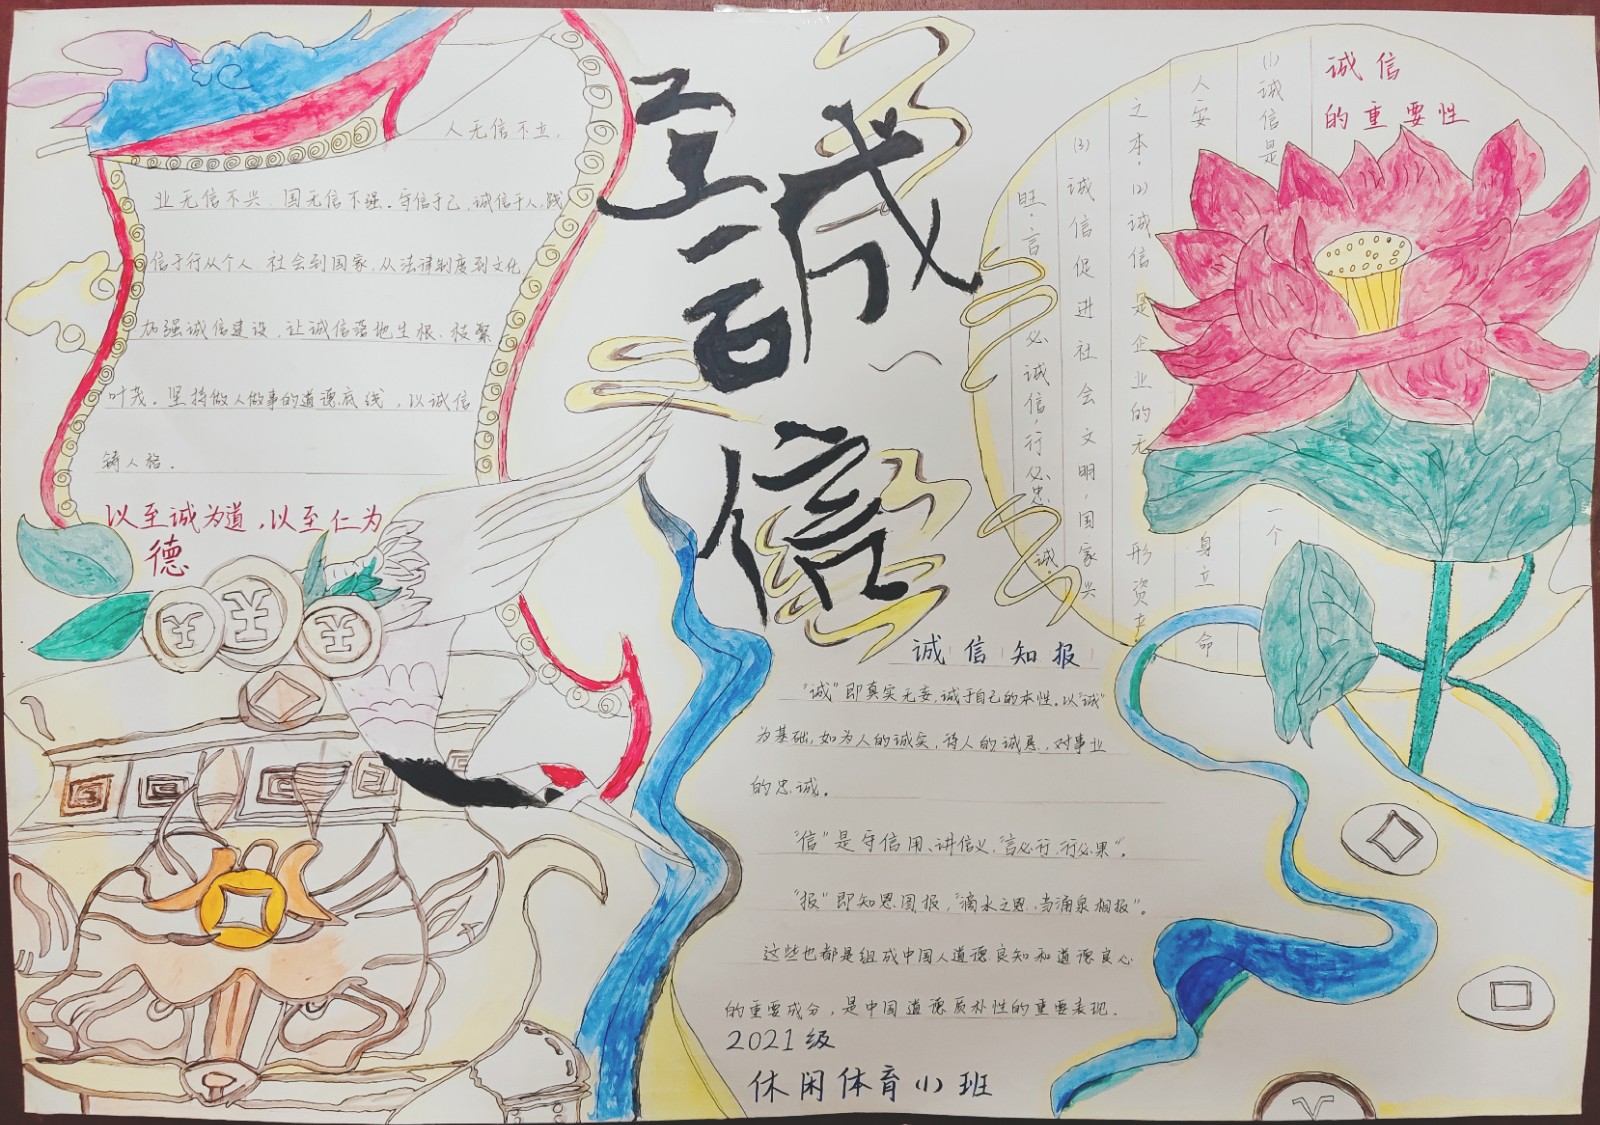 人无信不立,
业无信不兴、国无信不强。守信于己,诚信于人,践
信于行从个人 社会到国家,从法律制度到文化,
加强诚信建设,让诚信落地生根、枝繁
叶茂。坚持做人做事的道德底线,以诚信
铸人格。
以至诚为道,以至仁为
德
天
天
天
至
誠
信
诚信
的重要性
(1)诚信是一个
人安身立命
之本。(2)诚信是企业的无形资产。
(3)诚信促进社会文明,国家兴
旺。言必诚信,行必忠诚。
诚信知报
“诚”即真实无妄,诚于自己的本性。以“诚”
为基础,如为人的诚实,待人的诚恳,对事业
的忠诚。
“信”是守信用、讲信义,“言必行,行必果”。
“报”即知恩图报,“滴水之恩,当涌泉相报”。
这些也都是组成中国人道德良知和道德良心
的重要成分,是中国道德质朴性的重要表现.
2021级
休闲体育(1)班